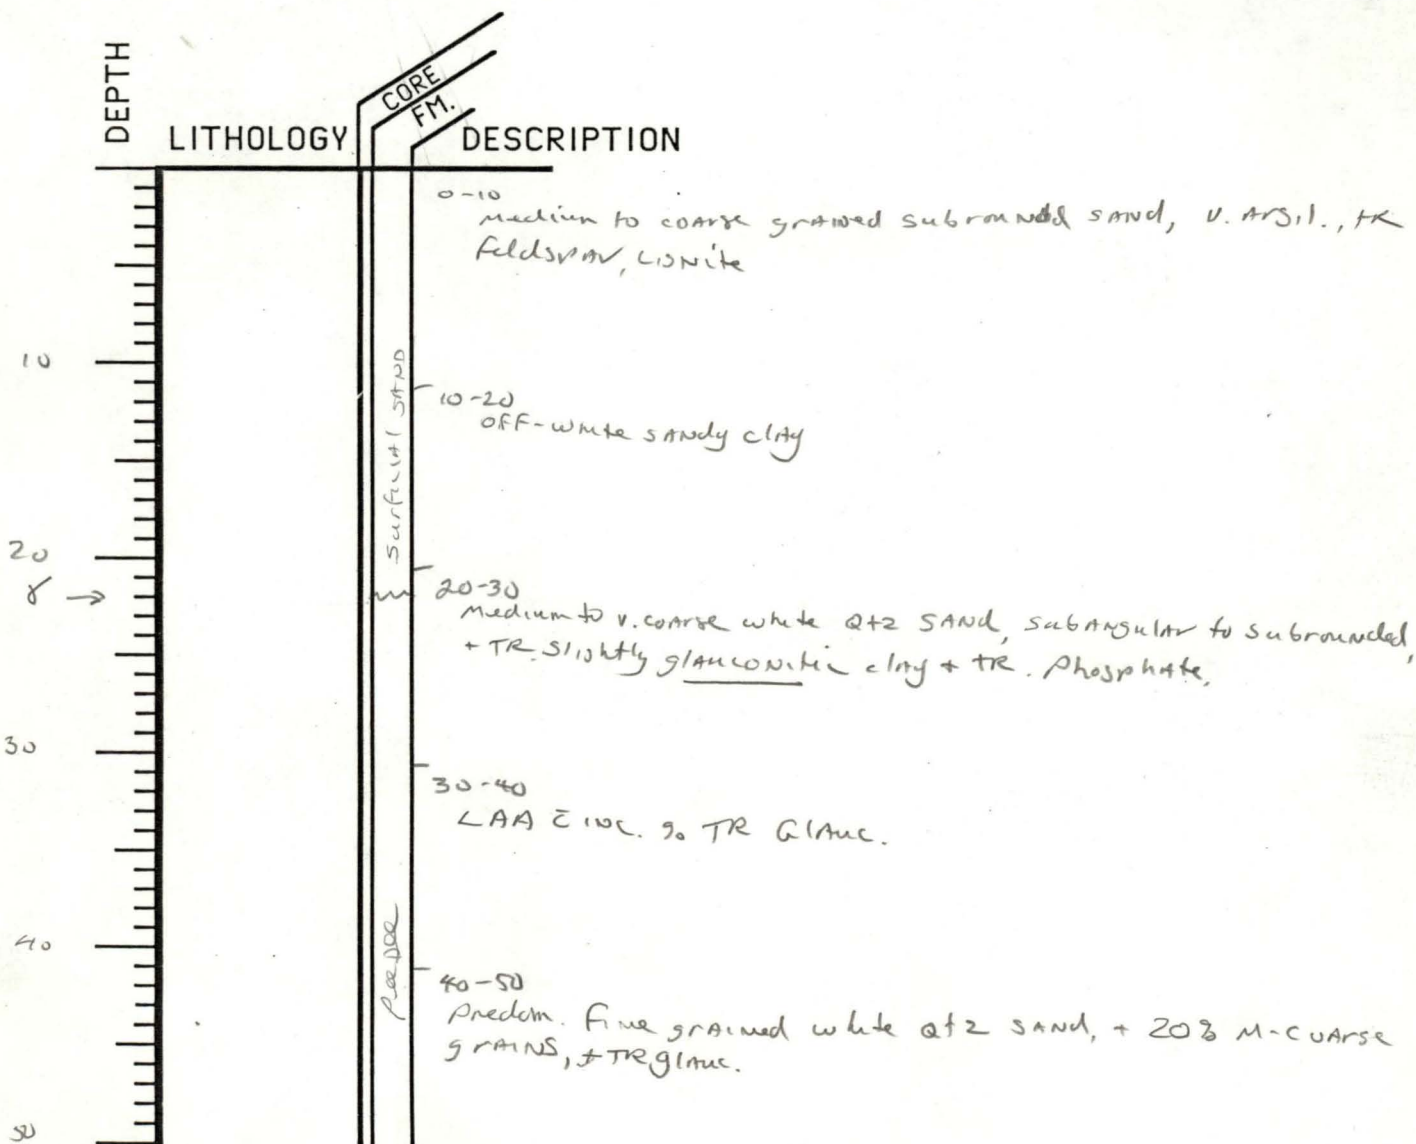 DEPTH
LITHOLOGY
CORE
FM.
DESCRIPTION
0-10
Medium to coarse grained subrounded sand, v. Argil., tr
feldspar, Lignite
10
Surficial Sand
10-20
off-white sandy clay
20
γ →
20-30
Medium to v. coarse white Qtz SAND, subangular to subrounded,
+ TR. slightly glauconitic clay + tr. Phosphate.
30
30-40
LAA c̄ inc. % TR Glauc.
40
PeeDee
40-50
Predom. fine grained white qtz sand, + 20% M-Coarse
grains, + TR glauc.
50